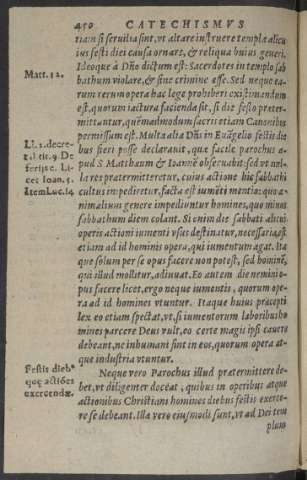 450 CATECHISMVS
tiam si seruilia sint, vt altare instruere templa alicu
ius festi diei causa ornare, & reliqua huius generi.
Ideoque à Dño dictum est: Sacerdotes in templo sab
Matt. 12.
bathum violare, & sine crimine esse. Sed neque ea-
rum rerum opera hac lege prohiberi existimandum
est, quorum iactura facienda sit, si die festo preter-
mittantur, quẽadmodum sacris etiam Canonibus
permissum est. Multa alia Dñs in Euãgelio festis die
bus fieri posse declarauit, que facile parochus a-
pud S. Matthæum & Ioannẽ obseruabit: sed vt nul-
la res pretermitteretur, cuius actione hic sabbathi
cultus impediretur, facta est iumẽti mentio: quo a-
nimalium genere impediuntur homines, quo minus
sabbathum diem colant. Si enim die sabbati alicui
operis actioni iumenti vsus destinatur, necessaria est
etiam ad id hominis opera, qui iumentum agat. Ita
que solum per se opus facere non potest, sed hominẽ,
qui illud molitur, adiuuat. Eo autem die nemini o-
pus facere licet, ergo neque iumentis, quorum ope-
ra ad id homines vtuntur. Itaque huius præcepti
lex eo etiam spectat, vt, si iumentorum laboribus ho
mines parcere Deus vult, eo certe magis ipsi cauere
debeant, ne inhumani sint in eos, quorum opera at-
que industria vtuntur.
Festis dieb9
que actiões
exercendæ.
Neque vero Parochus illud prætermittere de-
bet, vt diligenter doceat, quibus in operibus atque
actionibus Christiani homines diebus festis exerce-
re se debeant. Illa vero eiusmodi sunt, vt ad Dei tem
plum